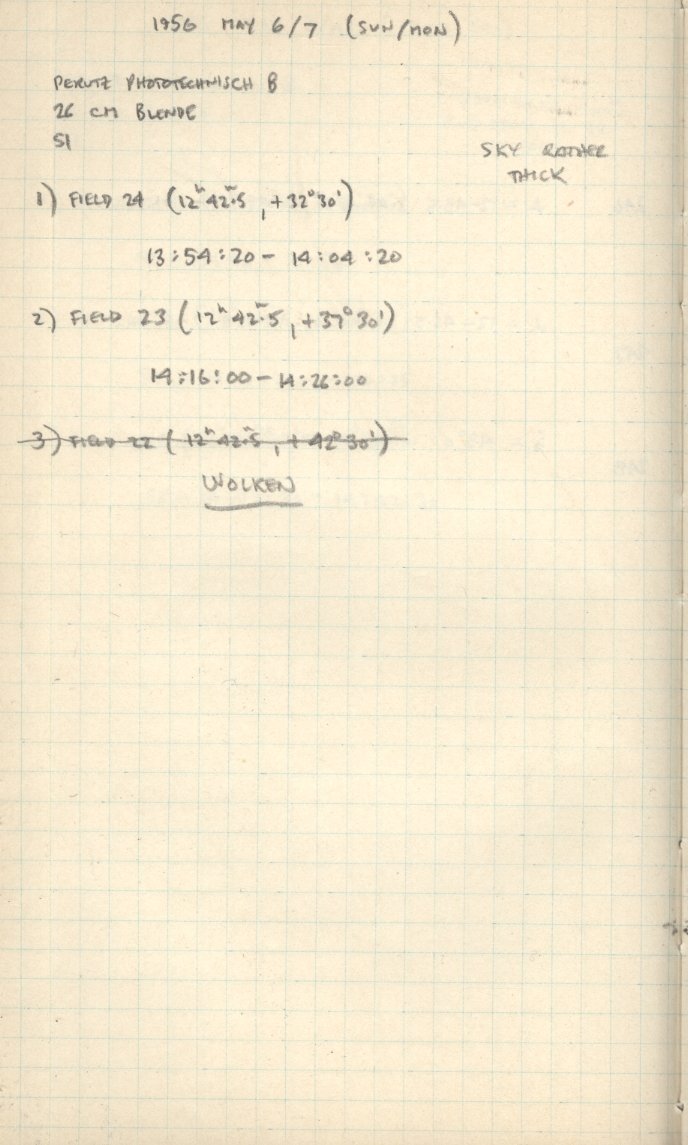 1956 MAY 6/7 (SUN/MON)
PERUTZ PHOTOTECHNISCH B
26 CM BLENDE
SI
SKY RATHER
THICK
1) FIELD 24 (12ʰ42ᵐ.5, +32°30')
13:54:20 - 14:04:20
2) FIELD 23 (12ʰ42ᵐ.5, +37°30')
14:16:00 - 14:26:00
3) FIELD 22 (12ʰ42ᵐ.5, +42°30')
WOLKEN